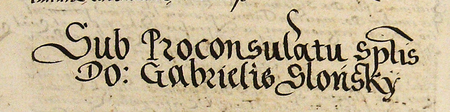 Sub Proconsulatu Splis
Do: Gabrielis Słonsky